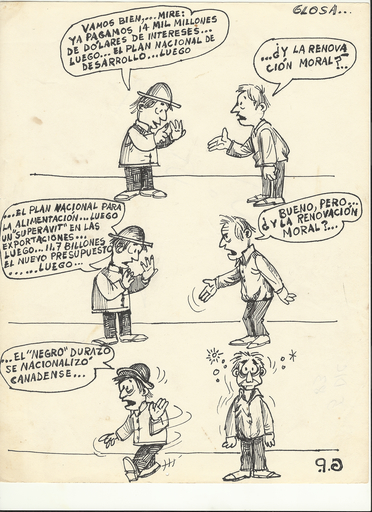 GLOSA...
VAMOS BIEN,... MIRE:
YA PAGAMOS 14 MIL MILLONES
DE DÓLARES DE INTERESES...
LUEGO... EL PLAN NACIONAL DE
DESARROLLO... LUEGO
...¿Y LA RENOVA
CIÓN MORAL?...
...EL PLAN NACIONAL PARA
LA ALIMENTACIÓN... LUEGO
UN "SUPERAVIT" EN LAS
EXPORTACIONES...
LUEGO... 11.7 BILLONES
EL NUEVO PRESUPUESTO
......LUEGO...
BUENO, PERO...
¿Y LA RENOVACIÓN
MORAL?...
...EL "NEGRO" DURAZO
SE NACIONALIZÓ
CANADENSE...